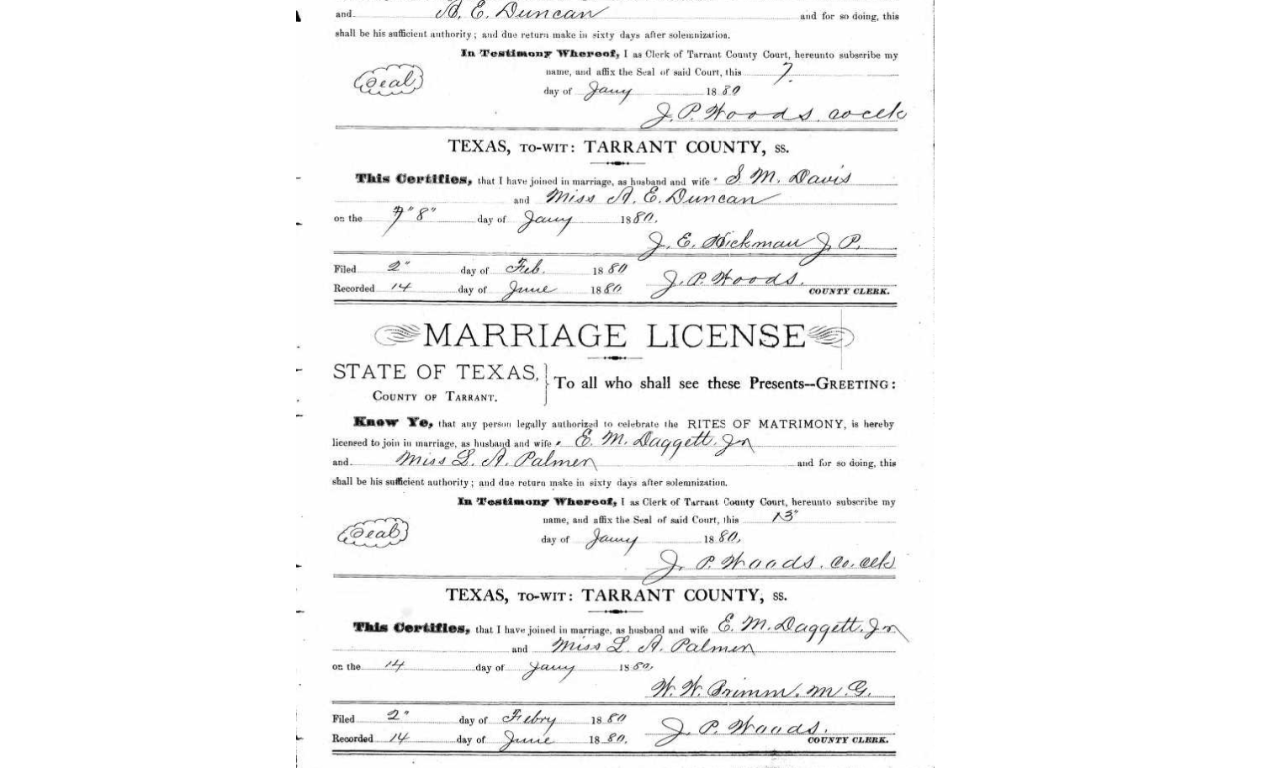 and A. E. Duncan and for so doing, this
shall be his sufficient authority; and due return make in sixty days after solemnization.
In Testimony Whereof, I as Clerk of Tarrant County Court, hereunto subscribe my
name, and affix the Seal of said Court, this 7.
Seal
day of Jany 1880
J. P. Woods. co clk
TEXAS, TO-WIT: TARRANT COUNTY, SS.
This Certifies, that I have joined in marriage, as husband and wife S M. Davis
and Miss A. E. Duncan
on the "8" day of Jany 1880.
J. E. Hickman J. P.
Filed 2" day of Feb. 1880
Recorded 14 day of June 1880. J. P. Woods. COUNTY CLERK.
MARRIAGE LICENSE
STATE OF TEXAS,
COUNTY OF TARRANT.
To all who shall see these Presents--GREETING:
Know Ye, that any person legally authorized to celebrate the RITES OF MATRIMONY, is hereby
licensed to join in marriage, as husband and wife E. M. Daggett. Jr
and Miss L. A. Palmer and for so doing, this
shall be his sufficient authority; and due return make in sixty days after solemnization.
In Testimony Whereof, I as Clerk of Tarrant County Court, hereunto subscribe my
name, and affix the Seal of said Court, this 13"
Seal
day of Jany 1880.
J. P. Woods. Co. Clk
TEXAS, TO-WIT: TARRANT COUNTY, SS.
This Certifies, that I have joined in marriage, as husband and wife E. M. Daggett. Jr
and Miss L. A. Palmer
on the 14 day of Jany 1880.
W. W. Brimm. M. G.
Filed 2" day of Febry 1880
Recorded 14 day of June 1880. J. P. Woods. COUNTY CLERK.